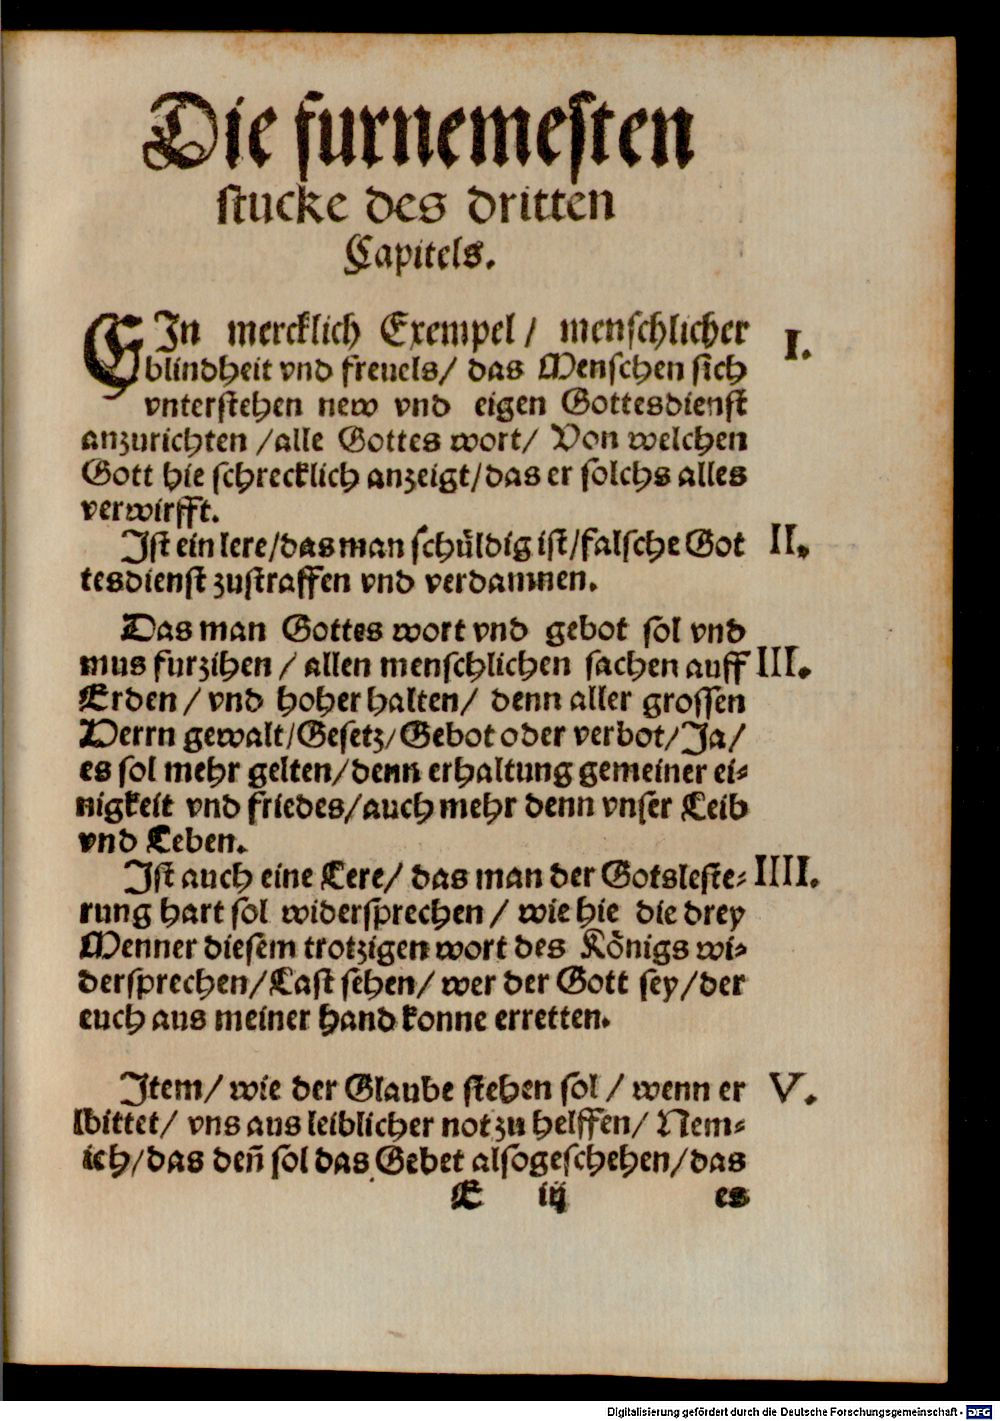 Die furnemesten
stucke des dritten
Capitels.
EIn mercklich Exempel / menschlicher I.
blindheit vnd freuels / das Menschen sich
vnterstehen new vnd eigen Gottesdienst
anzurichten / alle Gottes wort / Von welchen
Gott hie schrecklich anzeigt / das er solchs alles
verwirfft.
Ist ein lere / das man schüldig ist / falsche Got II.
tesdienst zustraffen vnd verdammen.
Das man Gottes wort vnd gebot sol vnd
mus furzihen / allen menschlichen sachen auff III.
Erden / vnd hoher halten / denn aller grossen
Herrn gewalt / Gesetz / Gebot oder verbot / Ja /
es sol mehr gelten / denn erhaltung gemeiner ei-
nigkeit vnd friedes / auch mehr denn vnser Leib
vnd Leben.
Ist auch eine Lere / das man der Gotsleste- IIII.
rung hart sol widersprechen / wie hie die drey
Menner diesem trotzigen wort des Königs wi-
dersprechen / Last sehen / wer der Gott sey / der
euch aus meiner hand konne erretten.
Item / wie der Glaube stehen sol / wenn er V.
lbittet / vns aus leiblicher not zu helffen / Nem-
ich / das deñ sol das Gebet also geschehen / das
E iij es
Digitalisierung gefördert durch die Deutsche Forschungsgemeinschaft - DFG